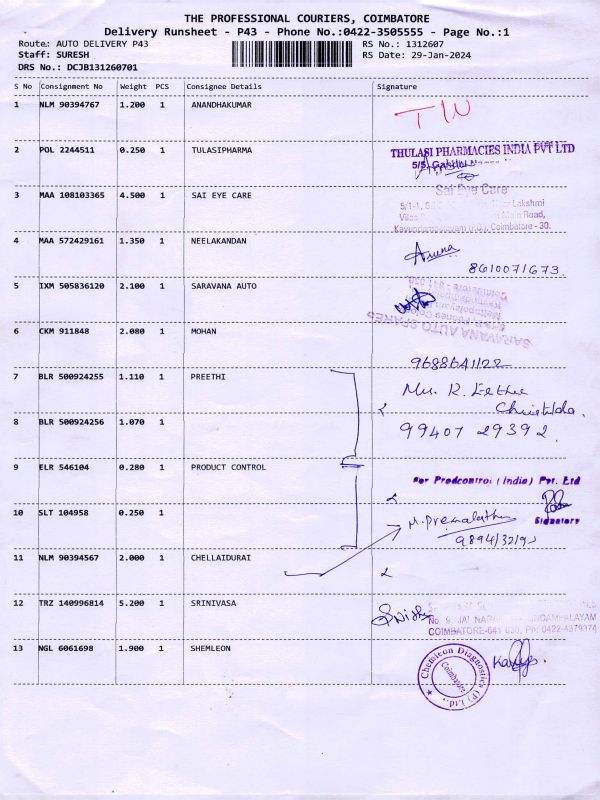 THE PROFESSIONAL COURIERS, COIMBATORE
Delivery Runsheet - P43 - Phone No.:0422-3505555 - Page No.:1
Route: AUTO DELIVERY P43 RS No.: 1312607
Staff: SURESH RS Date: 29-Jan-2024
DRS No.: DCJB131260701
S No Consignment No Weight PCS Consignee Details Signature
1 NLM 90394767 1.200 1 ANANDHAKUMAR
2 POL 2244511 0.250 1 TULASIPHARMA THULASI PHARMACIES INDIA PVT LTD
3 MAA 108103365 4.500 1 SAI EYE CARE Sai Eye Care
5/1-1, Lakshmi
Main Road,
Coimbatore - 30.
4 MAA 572429161 1.350 1 NEELAKANDAN Aruna
8610071673.
5 IXM 505836120 2.100 1 SARAVANA AUTO
SARAVANA AUTO SPARES
6 CKM 911848 2.080 1 MOHAN
9688641122
7 BLR 500924255 1.110 1 PREETHI Mrs. R.
8 BLR 500924256 1.070 1 99407 29392
9 ELR 546104 0.280 1 PRODUCT CONTROL For Prodcontrol (India) Pvt. Ltd
10 SLT 104958 0.250 1 M. Premalatha Signatory
11 NLM 90394567 2.000 1 CHELLAIDURAI
12 TRZ 140996814 5.200 1 SRINIVASA
COIMBATORE-641 030, Ph: 0422-4379374
13 NGL 6061698 1.900 1 SHEMLEON
Chemicon Diagnostics (P) Ltd.,
Coimbatore